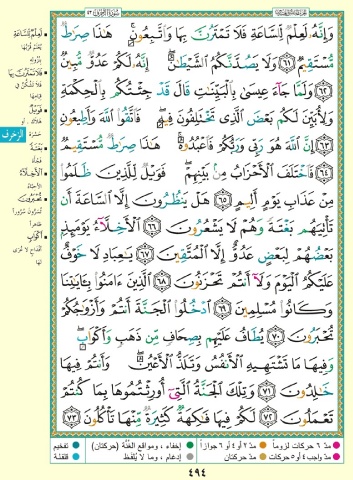 سُورَةُ الزُّخْرُفِ ٤٣
وَإِنَّهُۥ لَعِلْمٌ لِّلسَّاعَةِ فَلَا تَمْتَرُنَّ بِهَا وَٱتَّبِعُونِ ۚ هَٰذَا صِرَٰطٌ
مُّسْتَقِيمٌ ٦١ وَلَا يَصُدَّنَّكُمُ ٱلشَّيْطَٰنُ ۖ إِنَّهُۥ لَكُمْ عَدُوٌّ مُّبِينٌ
٦٢ وَلَمَّا جَآءَ عِيسَىٰ بِٱلْبَيِّنَٰتِ قَالَ قَدْ جِئْتُكُم بِٱلْحِكْمَةِ
وَلِأُبَيِّنَ لَكُم بَعْضَ ٱلَّذِى تَخْتَلِفُونَ فِيهِ ۖ فَٱتَّقُوا۟ ٱللَّهَ وَأَطِيعُونِ
٦٣ إِنَّ ٱللَّهَ هُوَ رَبِّى وَرَبُّكُمْ فَٱعْبُدُوهُ ۚ هَٰذَا صِرَٰطٌ مُّسْتَقِيمٌ
٦٤ فَٱخْتَلَفَ ٱلْأَحْزَابُ مِنۢ بَيْنِهِمْ ۖ فَوَيْلٌ لِّلَّذِينَ ظَلَمُوا۟
مِنْ عَذَابِ يَوْمٍ أَلِيمٍ ٦٥ هَلْ يَنظُرُونَ إِلَّا ٱلسَّاعَةَ أَن
تَأْتِيَهُم بَغْتَةً وَهُمْ لَا يَشْعُرُونَ ٦٦ ٱلْأَخِلَّآءُ يَوْمَئِذٍۭ
بَعْضُهُمْ لِبَعْضٍ عَدُوٌّ إِلَّا ٱلْمُتَّقِينَ ٦٧ يَٰعِبَادِ لَا خَوْفٌ
عَلَيْكُمُ ٱلْيَوْمَ وَلَآ أَنتُمْ تَحْزَنُونَ ٦٨ ٱلَّذِينَ ءَامَنُوا۟ بِـَٔايَٰتِنَا
وَكَانُوا۟ مُسْلِمِينَ ٦٩ ٱدْخُلُوا۟ ٱلْجَنَّةَ أَنتُمْ وَأَزْوَٰجُكُمْ
تُحْبَرُونَ ٧٠ يُطَافُ عَلَيْهِم بِصِحَافٍ مِّن ذَهَبٍ وَأَكْوَابٍ ۖ
وَفِيهَا مَا تَشْتَهِيهِ ٱلْأَنفُسُ وَتَلَذُّ ٱلْأَعْيُنُ ۖ وَأَنتُمْ فِيهَا
خَٰلِدُونَ ٧١ وَتِلْكَ ٱلْجَنَّةُ ٱلَّتِىٓ أُورِثْتُمُوهَا بِمَا كُنتُمْ
تَعْمَلُونَ ٧٢ لَكُمْ فِيهَا فَٰكِهَةٌ كَثِيرَةٌ مِّنْهَا تَأْكُلُونَ ٧٣
لَعِلْمٌ لِّلسَّاعَةِ
فَلَا تَمْتَرُنَّ بِهَا
فَوَيْلٌ
الزخرف
بَغْتَةً
فجأة
الْأَخِلَّاءُ
تُحْبَرُونَ
أَكْوَابٍ
مدّ ٦ حركات لزوماً مدّ ٢ أو ٤ أو ٦ جوازاً إخفاء، ومواقع الغُنَّة (حركتان) تفخيم
مدّ واجب ٤ أو ٥ حركات مدّ حركتان إدغام، وما لا يُلفَظ قلقلة
٤٩٤